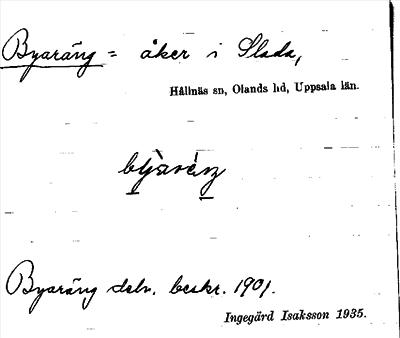 Byaräng = åker i Slada,
Hållnäs sn, Olands hd, Uppsala län.
Byaräng deln. beskr. 1901.
Ingegärd Isaksson 1935.